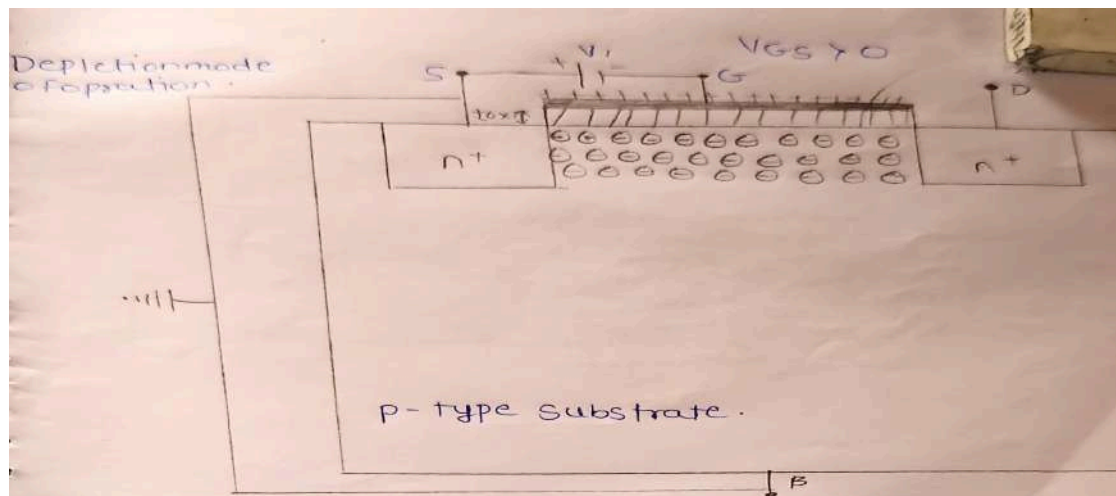 Depletionmode
ofopration.
S
+ V1 -
G
VGS > 0
D
tox
n+
n+
p-type substrate.
B